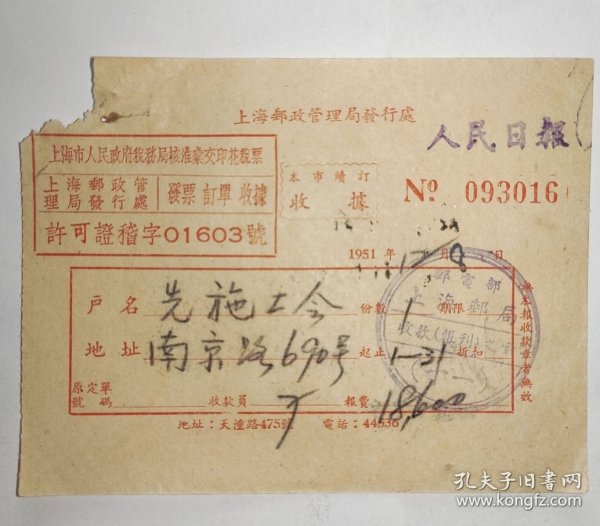 上海郵政管理局發行處
人民日報
上海市人民政府稅務局核准彙交印花稅票
上海郵政管理局發行處
發票 訂單 收據
許可證稽字01603號
本市續訂
收據
No 093016
1951年12月8日
郵電部
上海郵局
收款(報刊)
戶名 先施工会 份數 1 期限
地址 南京路690号 起止 1-31 折扣
原定單號碼 收款員 報費 18,600
無本報收款章者無效
地址:天潼路475號 電話:44536
孔夫子旧书网
www.kongfz.com